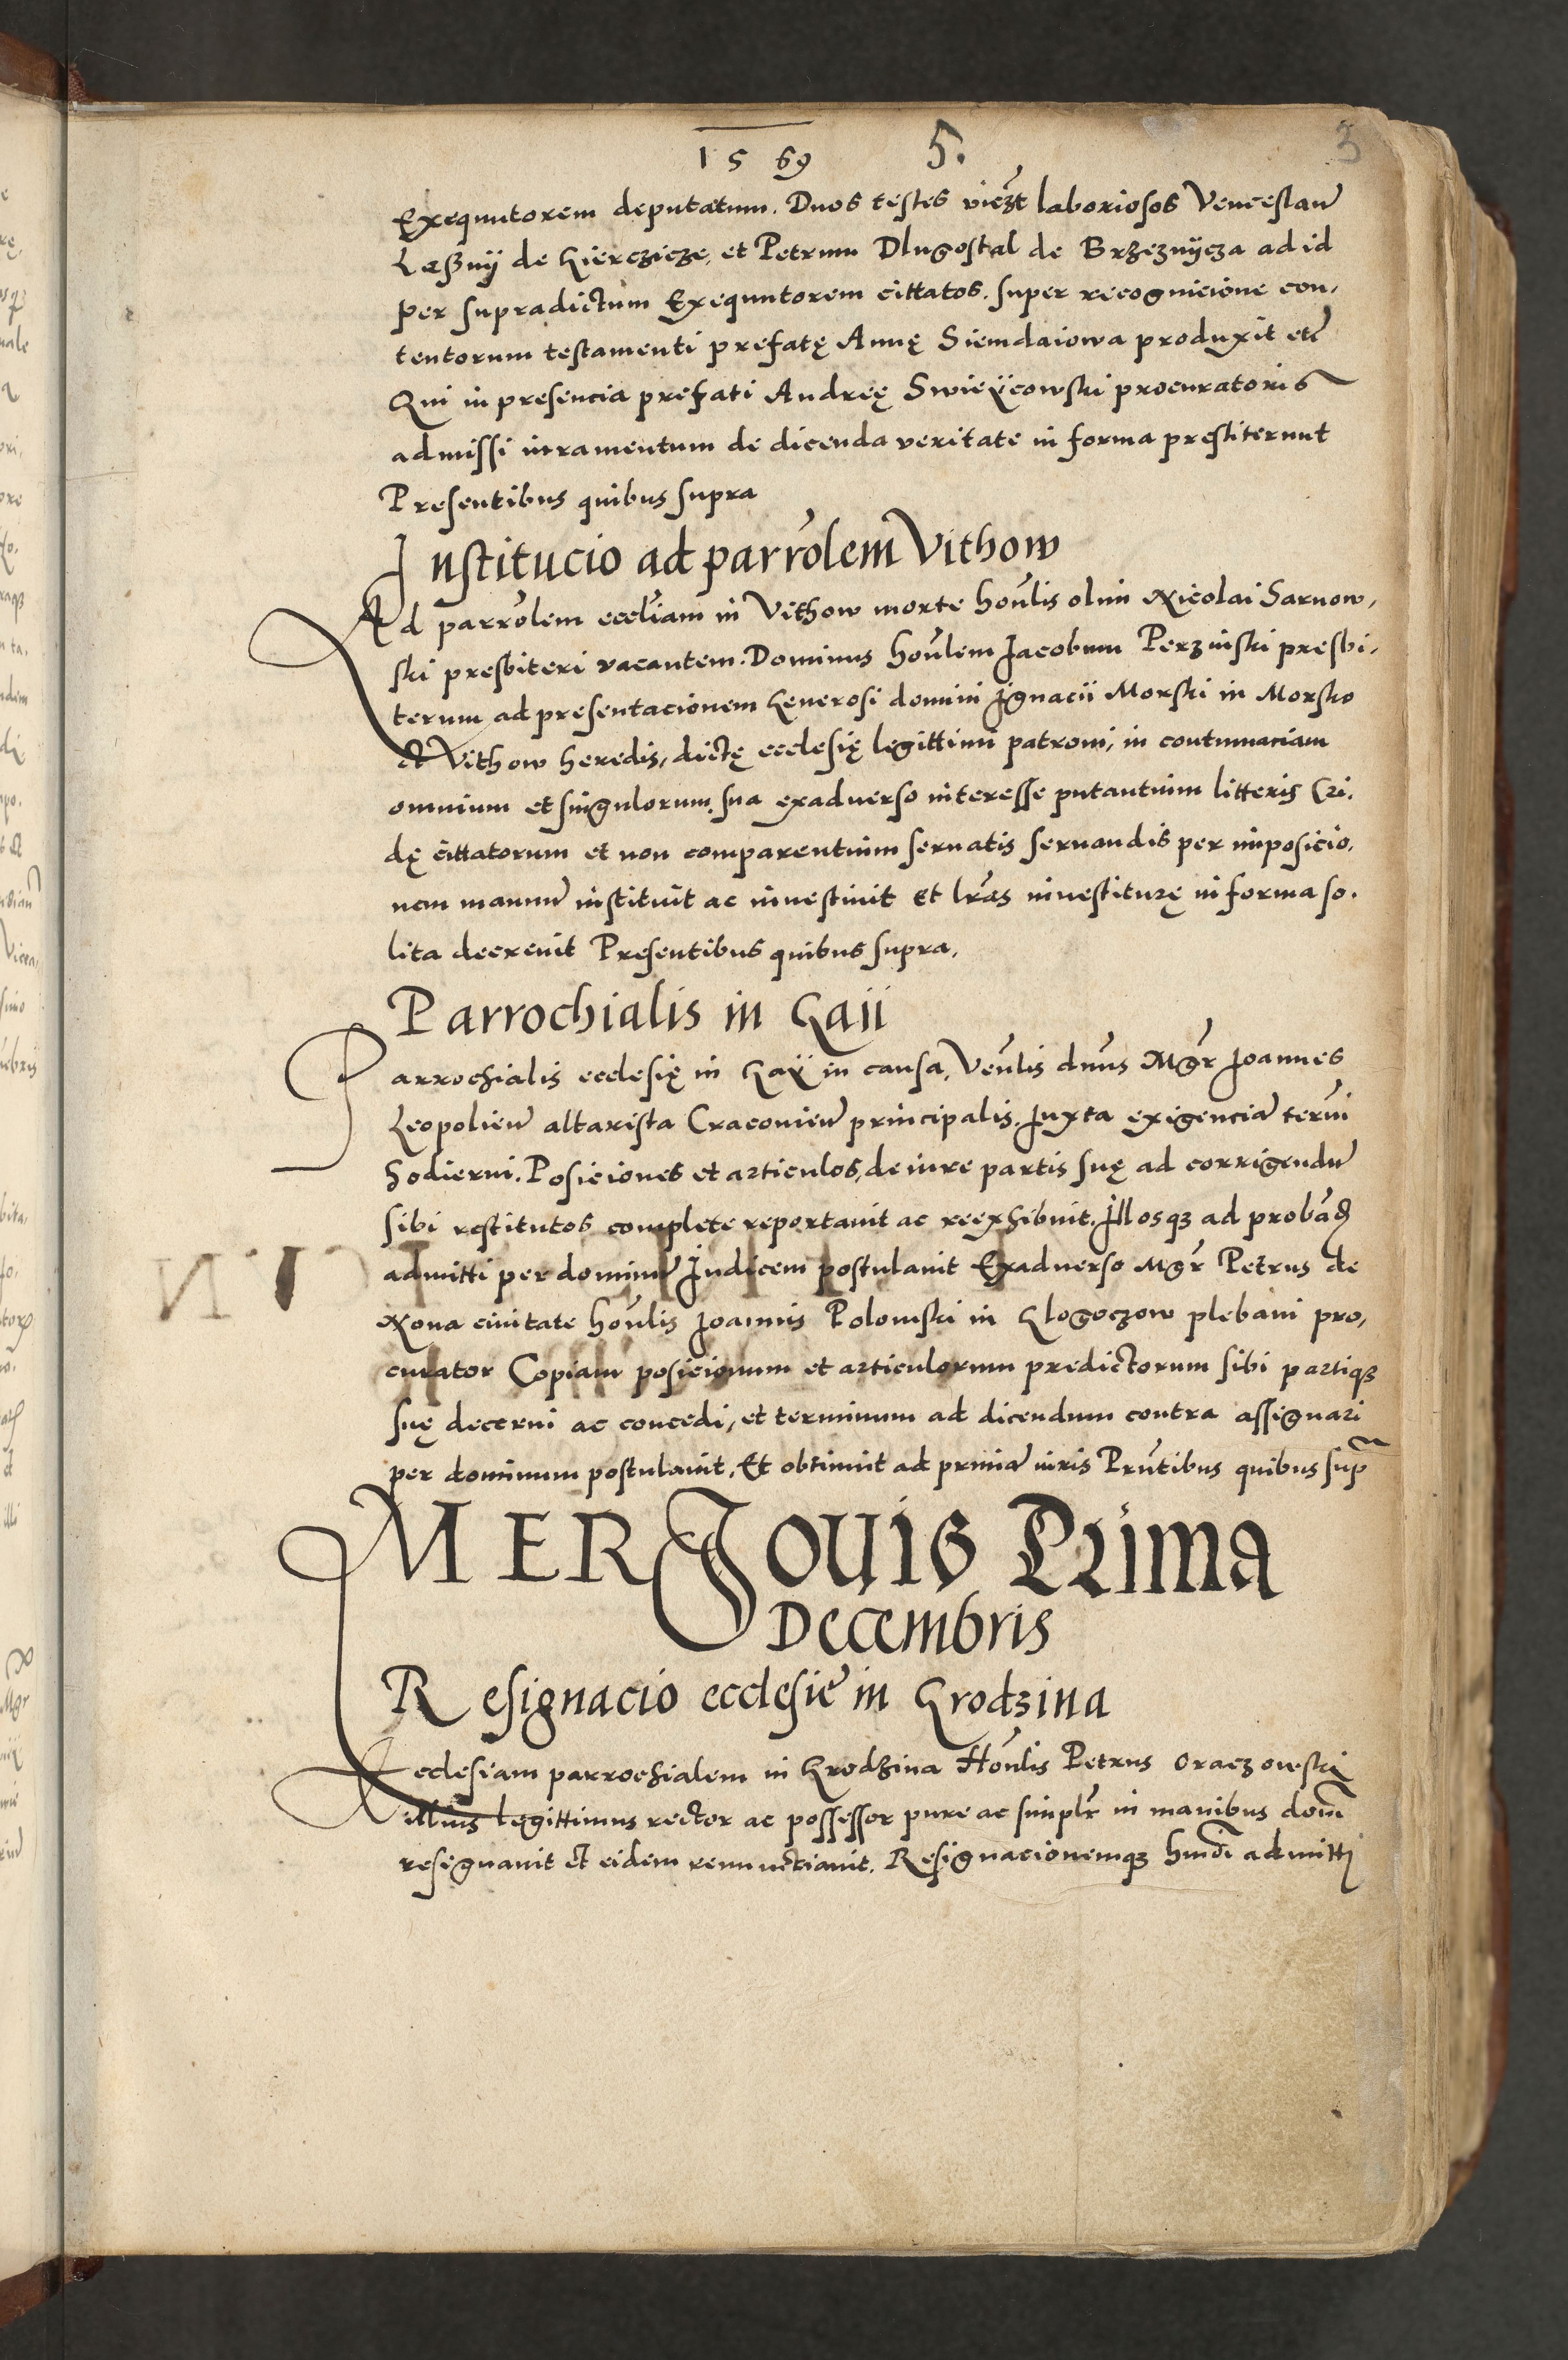 1569 5. 3
Exequutorem deputatum. Duos testes viczt laboriosos Venceslaw̃
Leßny de Gierczicze, et Petrum Dlugostal de Brzeznycza ad id
per supradictum Exequutorem cittatos. super recognicione con,
tentorum testamenti prefatę Annę Siemdaiowa produxit etc̃
Qui in presencia prefati Andreę Swieÿcowski procuratoris
admissi iuramentum de dicenda veritate in forma prestiterunt
Presentibus quibus supra
Institucio ad parro̅lem Vithow
Ad parro̅lem eccl̅iam in Vithow morte hon̅lis olim Nicolai Sarnow,
ski presbiteri vacantem. Dominus hon̅lem Jacobum Perzinski presbi,
terum ad presentacionem Generosi domini Ignacii Morski in Morsko
et Vithow heredis, dictę ecclesię legittimi patroni, in contumaciam
omnium et singulorum, sua exaduerso interesse putantium litteris Cri,
dę cittatorum et non comparentium seruatis seruandis per imposicio,
nem manuũ instituit ac inuestiuit et lr̅as inuestiturę in forma so.
lita decreuit Presentibus quibus supra.
Parrochialis in Gaii
Parrochialis ecclesię in Gaÿ in causa, Ven̅lis dn̅us Mgr̅ Joannes
Leopolień altarista Cracovień principalis. Juxta exigenciã terM̅i
hodierni. Posiciones et articulos, de iure partis suę ad corrigendũ
sibi restitutos complete reportauit ac reexhibuit. Illosqʒ ad probãd
admitti per dominũ Judicem postulauit Exaduerso Mgr̅ Petrus de
Noua ciuitate hon̅lis Joannis Polomski in Glogoczow plebani pro,
curator Copiam posicionum et articulorum predictorum sibi partiqʒ
suę decerni ac concedi, et terminum ad dicendum contra assignari
per dominum postulauit. Et obtinuit ad primã iuris Prn̅tibus quibus sup
MER Jouis Prima
Decembris
Resignacio ecclesie in Grodzina
Ecclesiam parrochialem in Grodzina Hon̅lis Petrus Oraczowski
illius legittimus rector ac possessor pure ac simplr̅ in manibus dom̅
resignauit et eidem renunctiauit. Resignacionemqʒ hm̅oi admitti